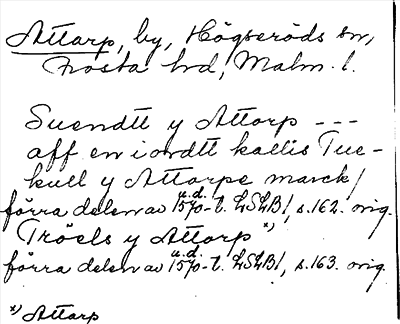 Attarp, by, Högseröds sn,
Frosta hd, Malm. l.
Suendtt y Attarp ---
aff en iordtt kallis Tue-
kull y Attarpe marck/
förra delen av u.d. 1570-t. LSLB/, s.162. orig.
Tröels y Attarp x)
förra delen av u.d. 1570-t. LSLB/, s.163. orig.
x) Attarp